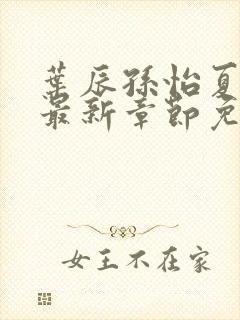 葉辰孫怡夏
最新章節免
女王不在家